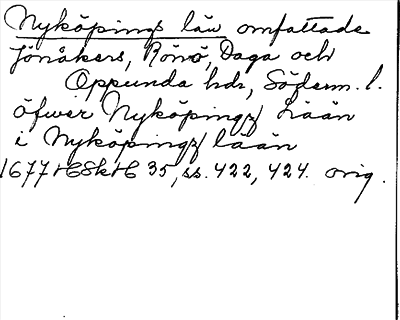 Nyköpings län omfattade
Jönåkers, Rönö, Daga och
Oppunda hdr, Söderm. l.
öfwer Nyköpingz Lään
i Nyköpingz lään
1677 HSH 35, ss. 422, 424. orig.